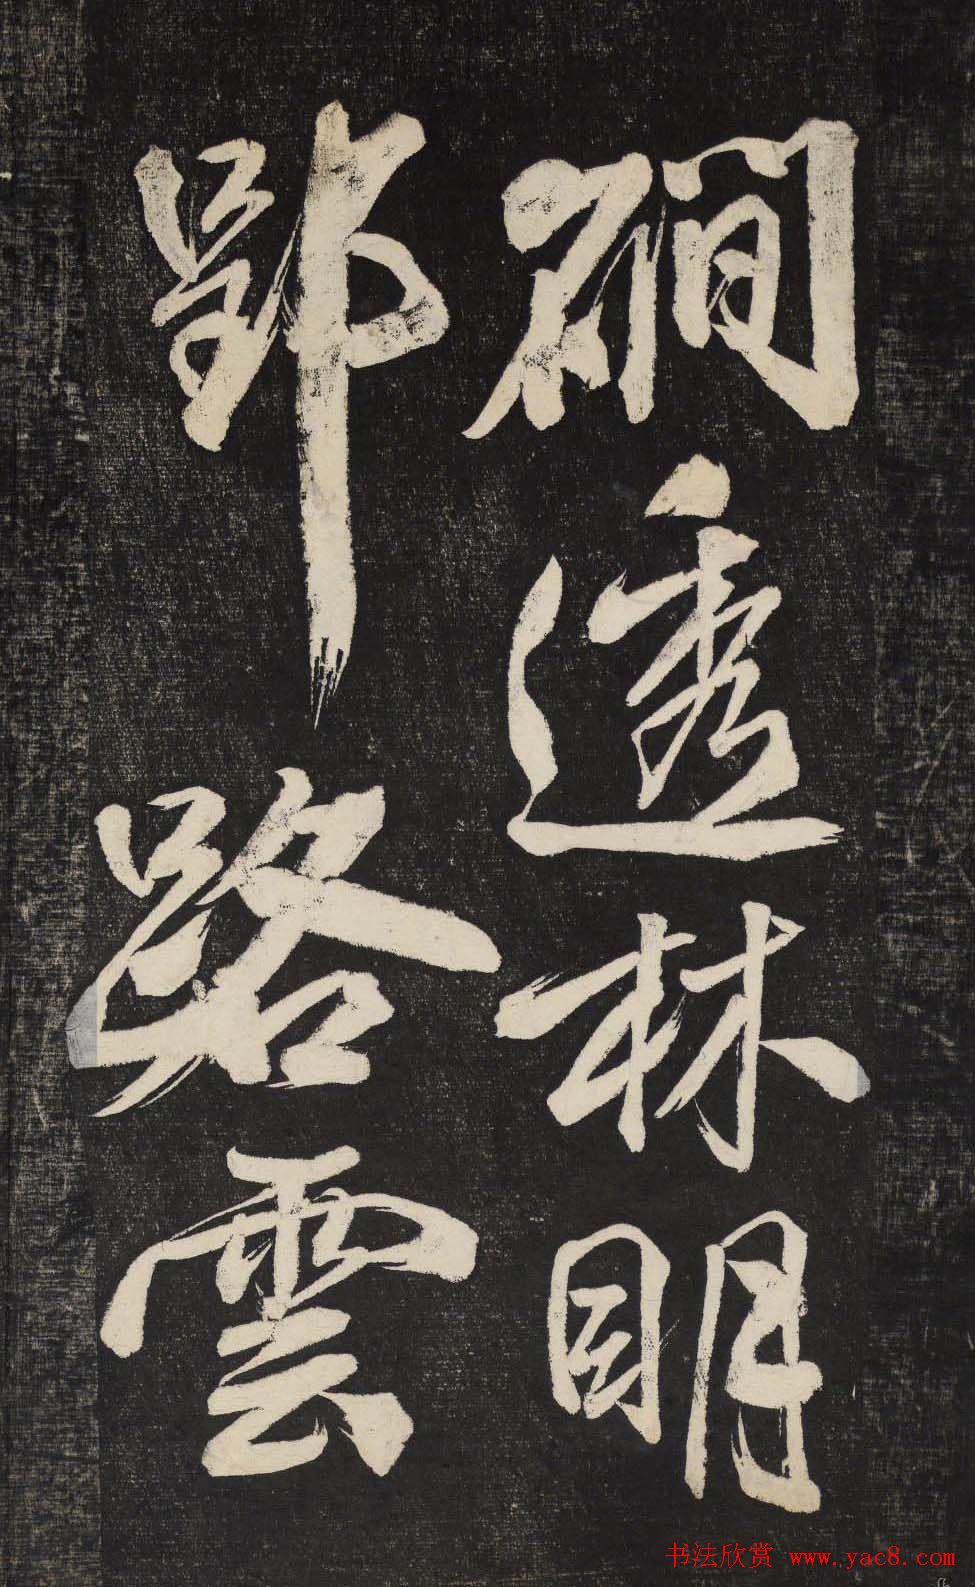 磵透林明
郢路雲
书法欣赏 www.yac8.com